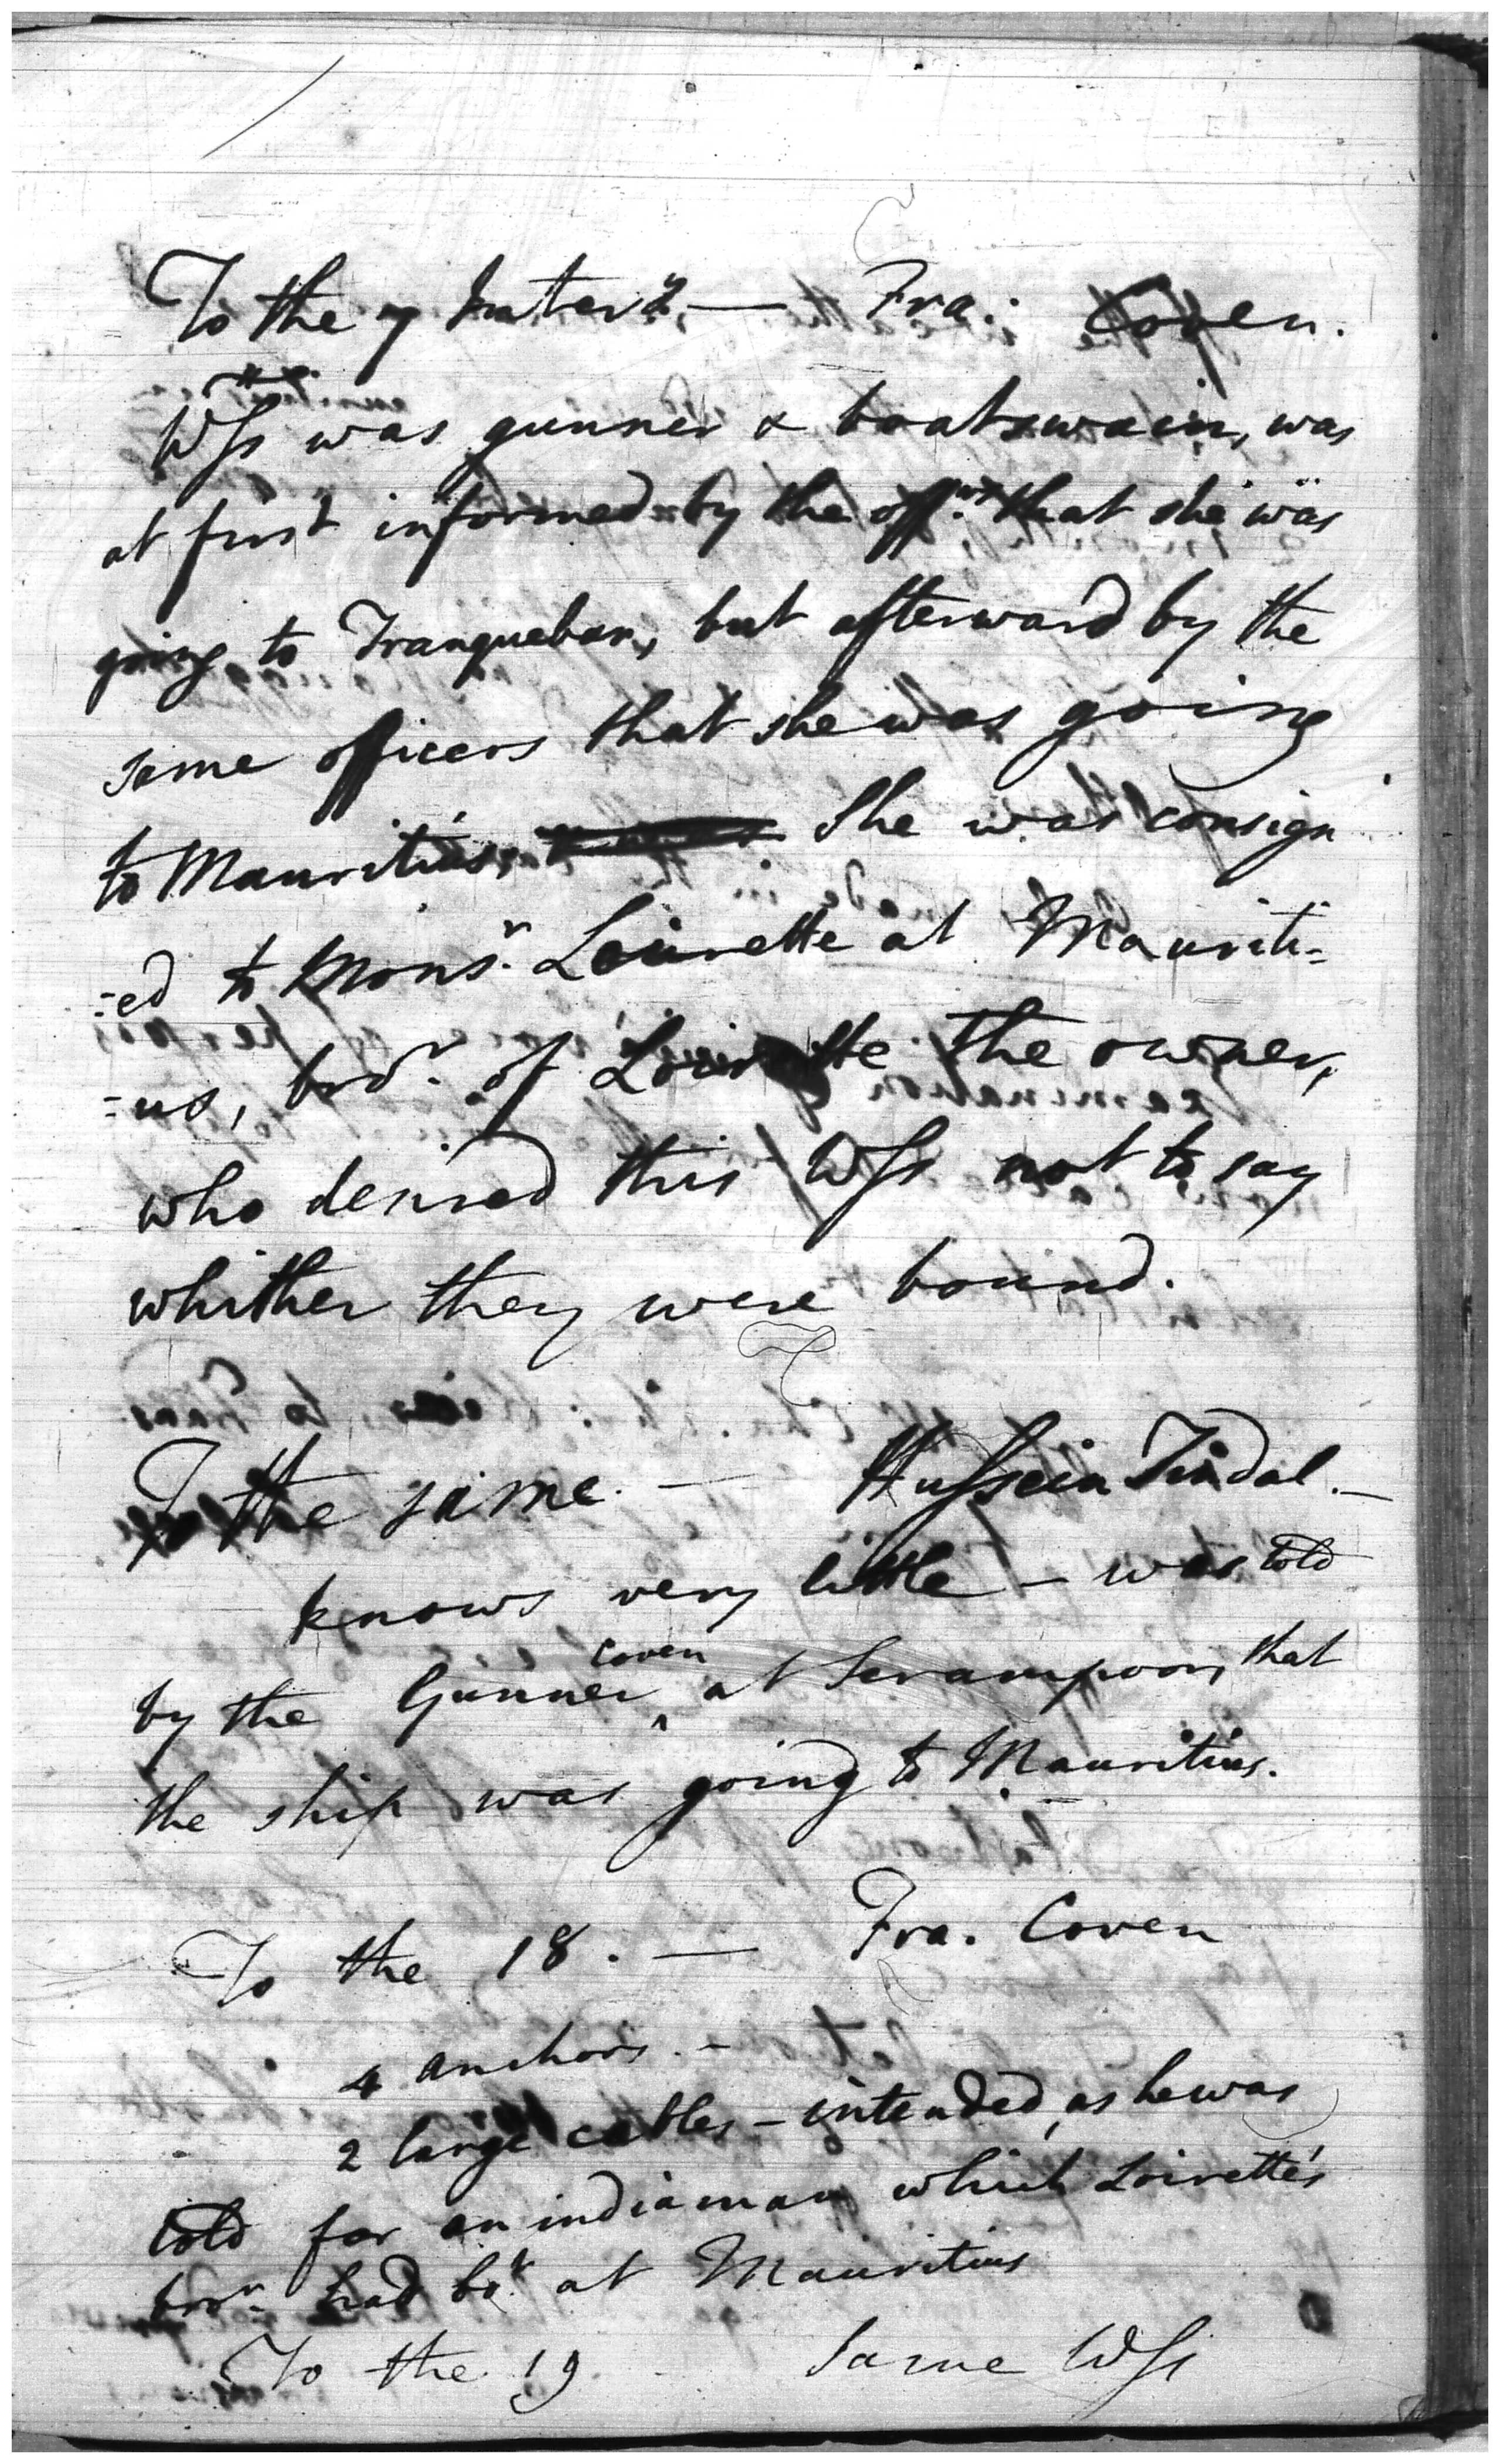 To the 7 Inter.y — Fra: Coven.
Wss was gunner & boatswain, was
at first informed by the off.rs that she was
going to Tranquebar, but afterward by the
same officers that she was going
to Mauritius, She was consign
=ed to Mons.r Loirette at Mauriti=
=us, bro.r of Loirette the owner,
who desired this Wss not to say
whither they were bound.
To the same. — Hussein Tindal. —
knows very little — was told
by the Gunner Coven at Serampoor, that
the ship was going to Mauritius.
To the 18. — Fra. Coven
4 anchors. -
2 large cables — intended, as he was
told for an indiaman which Loirette's
bror. had bo.t at Mauritius
To the 19 Same Wss